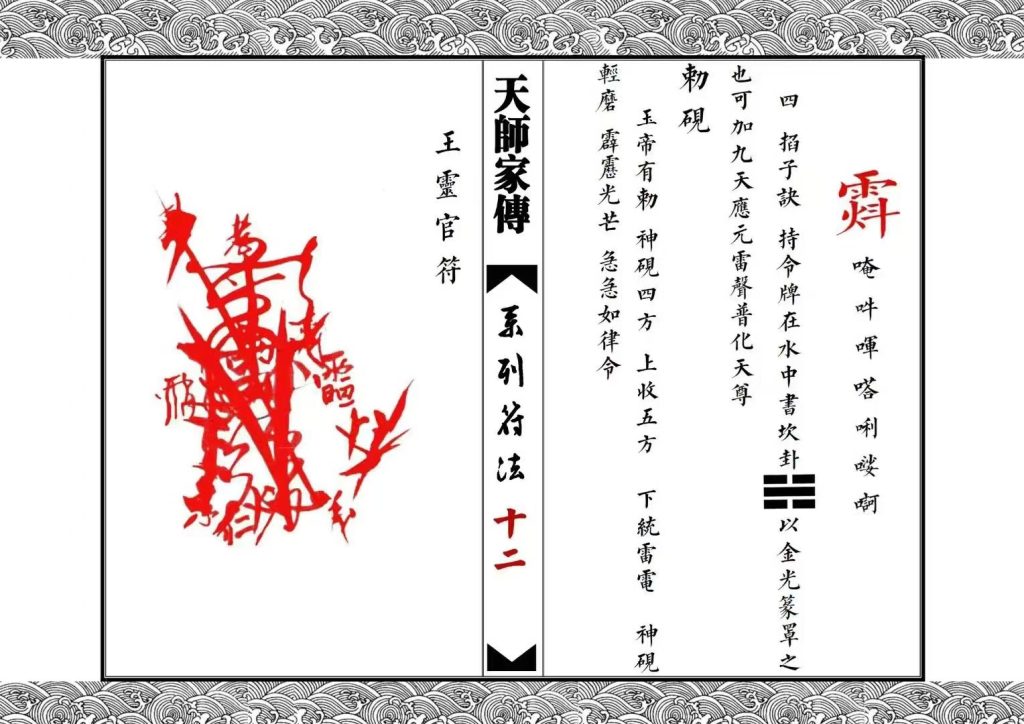 唵吽喗嗒唎嘍啊
四 掐子訣 持令牌在水中書坎卦☵以金光篆罩之
也可加九天應元雷聲普化天尊
勅硯
玉帝有勅 神硯四方 上收五方 下統雷電 神硯
輕磨 霹靂光芒 急急如律令
天師家傳 系列符法 十二
王靈官符